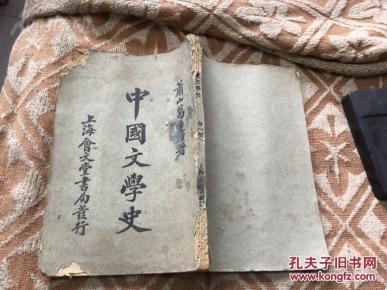 蕭山葛遵禮著
中國文學史
上海會文堂書局發行
孔夫子旧书网